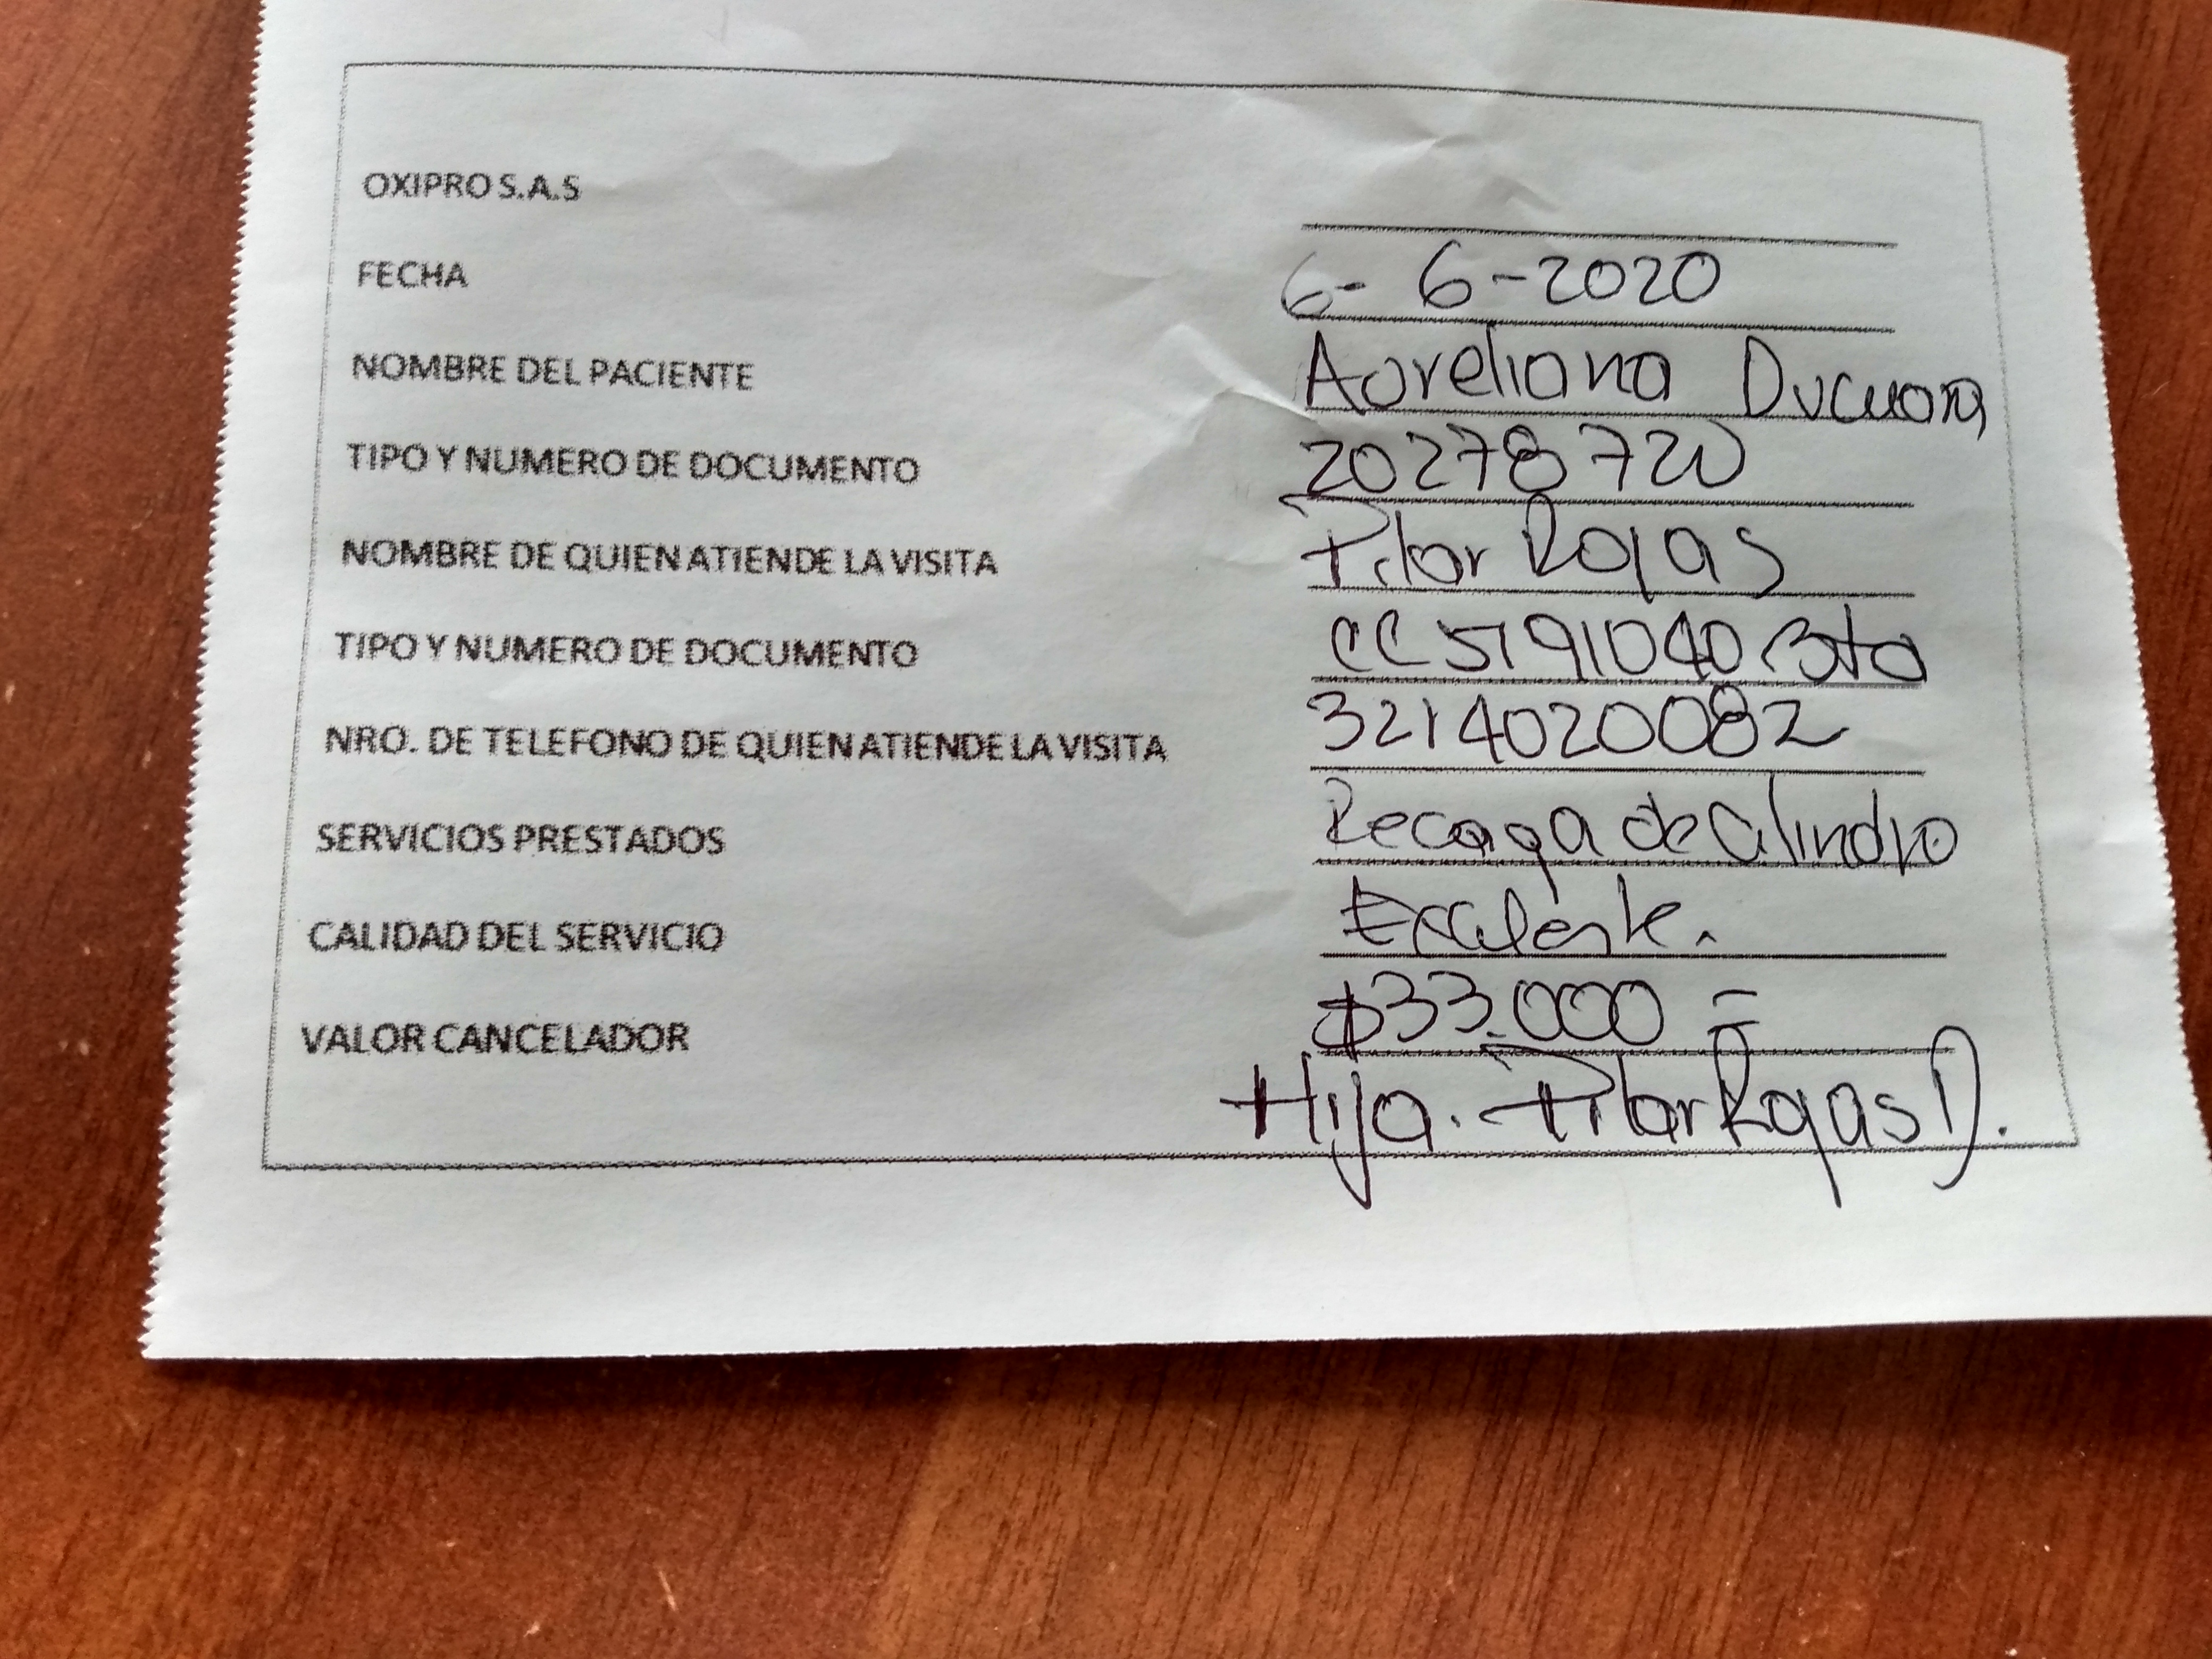 OXIPRO S.A.S
FECHA 6- 6-2020
NOMBRE DEL PACIENTE Aureliana Ducuara
TIPO Y NUMERO DE DOCUMENTO 20278720
NOMBRE DE QUIEN ATIENDE LA VISITA Pilar Rojas
TIPO Y NUMERO DE DOCUMENTO CC 51791040 Bta
NRO. DE TELEFONO DE QUIEN ATIENDE LA VISITA 3214020082
SERVICIOS PRESTADOS Recaga de Cilindro
CALIDAD DEL SERVICIO Excelente.
VALOR CANCELADOR $33.000 =
Hija. Pilar Rojas D.